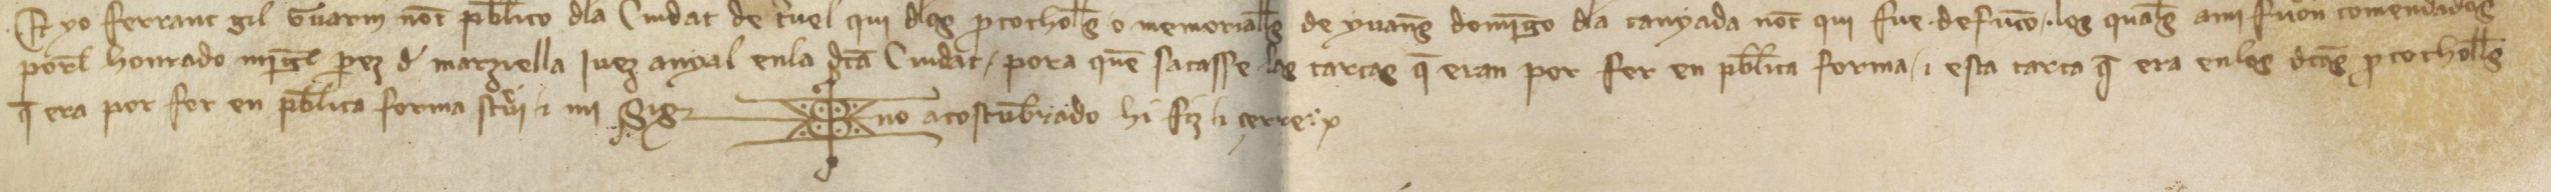 Et yo ferrant gil Guarin not publico dla Ciudat de teruel qui dlos prothocolls o memorialls de yuanes domingo dla canyada not qui fue defunto los quales ami fueron comendados
porel honrado miguel perez d marziella Iuez anyal enla dcta Ciudat pora quen sacasse las cartas q eran por fer en publica forma / i esta carta q era enlos dctos prothocolls
q era por fer en publica forma scriui i mi Sig no acostubrado hi fiz li cerre